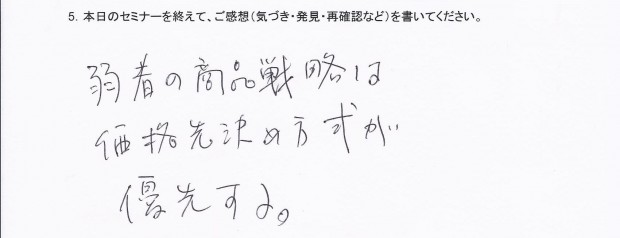 5. 本日のセミナーを終えて、ご感想(気づき・発見・再確認など)を書いてください。
弱者の商品戦略は
価格先決め方式が
優先する。